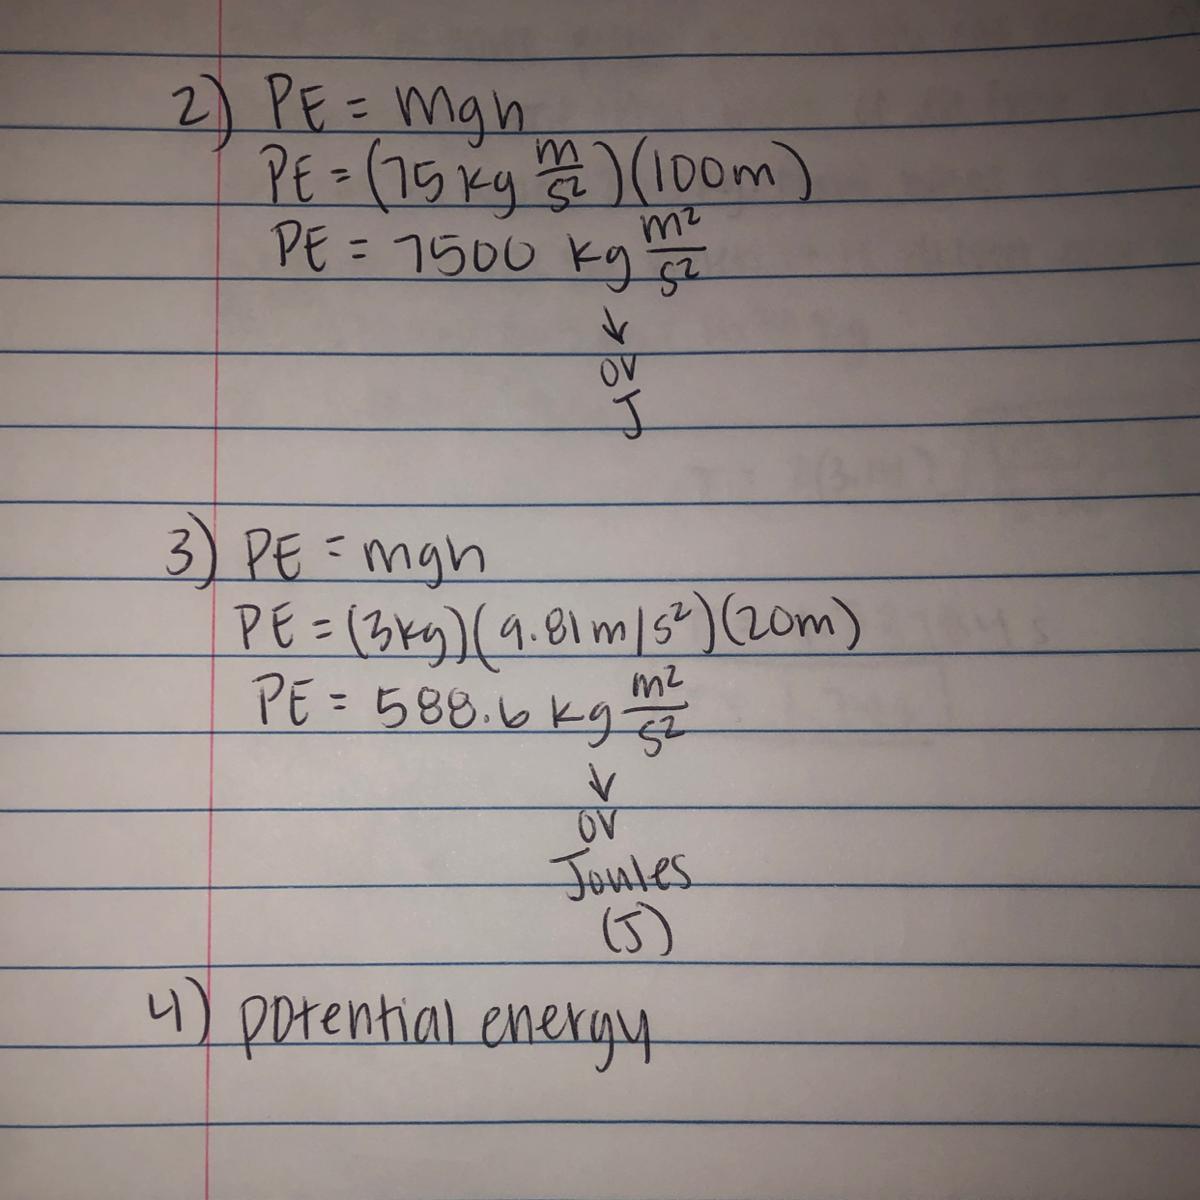 2) PE = mgh
PE = (75 kg m/s²)(100m)
PE = 7500 kg m²/s²
↓
or
J
3) PE = mgh
PE = (3kg)(9.81m/s²)(20m)
PE = 588.6 kg m²/s²
↓
or
Joules
(J)
4) potential energy